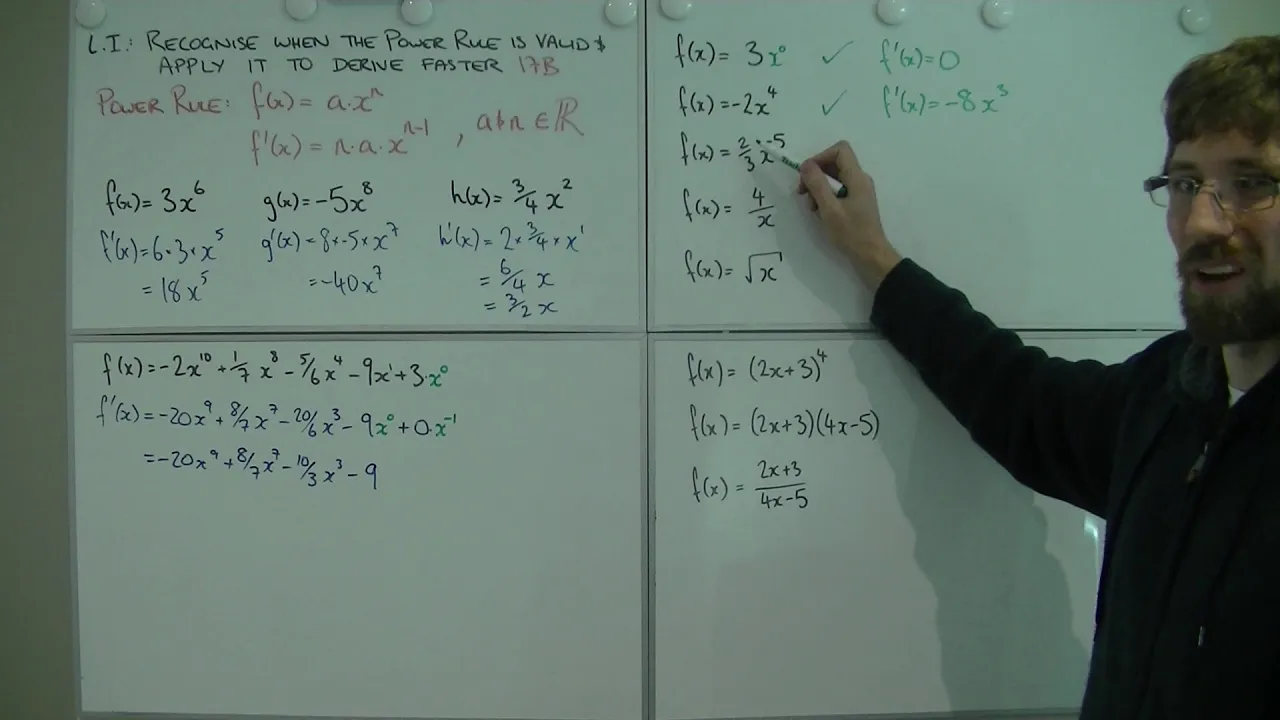 L.I.: RECOGNISE WHEN THE POWER RULE IS VALID &
APPLY IT TO DERIVE FASTER 17B
POWER RULE: f(x) = a·xⁿ
f'(x) = n·a·xⁿ⁻¹ , a & n ∈ ℝ
f(x) = 3x⁶
f'(x) = 6×3×x⁵
= 18x⁵
g(x) = -5x⁸
g'(x) = 8×-5×x⁷
= -40x⁷
h(x) = 3/4 x²
h'(x) = 2×3/4×x¹
= 6/4 x
= 3/2 x
f(x) = 3x⁰ ✓ f'(x) = 0
f(x) = -2x⁴ ✓ f'(x) = -8x³
f(x) = 2/3 x⁻⁵
f(x) = 4/x
f(x) = √x
f(x) = -2x¹⁰ + 1/7 x⁸ - 5/6 x⁴ - 9x¹ + 3·x⁰
f'(x) = -20x⁹ + 8/7 x⁷ - 20/6 x³ - 9x⁰ + 0·x⁻¹
= -20x⁹ + 8/7 x⁷ - 10/3 x³ - 9
f(x) = (2x+3)⁴
f(x) = (2x+3)(4x-5)
f(x) = (2x+3)/(4x-5)